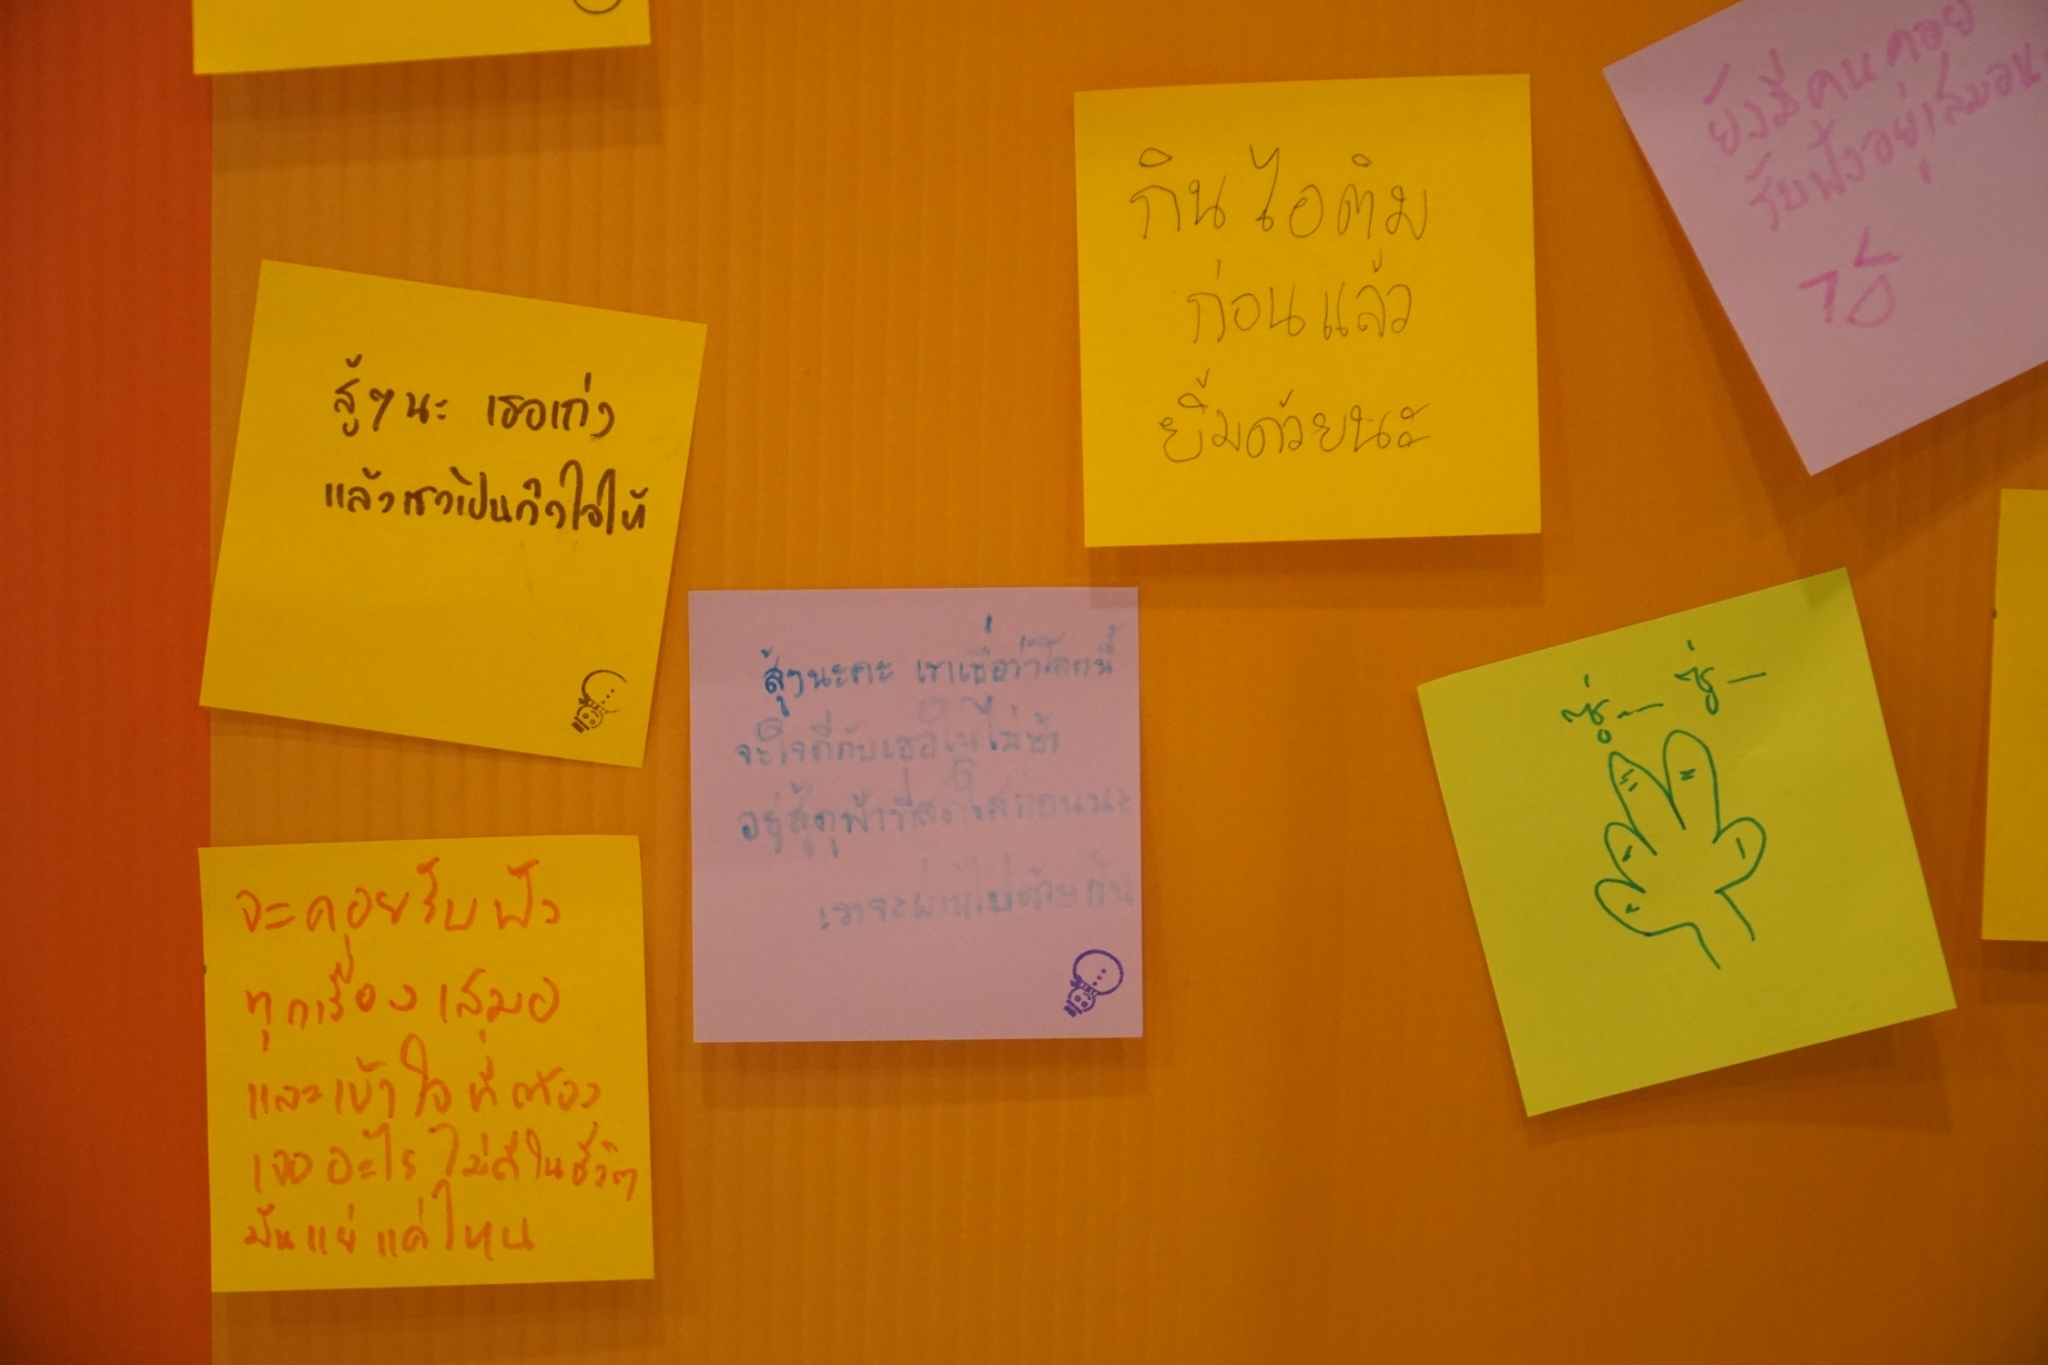 สู้ๆนะ เธอเก่ง
แล้วเราเป็นกำลังใจให้
กินไอติม
ก่อนแล้ว
ยิ้มด้วยนะ
ยังมีคนคอย
รับฟังอยู่เสมอนะ
สู้ๆนะคะ เราเชื่อว่าโลกนี้
จะใจดีกับเธอในไม่ช้า
อยู่สู้ดูฟ้าที่สดใสก่อนนะ
เราจะผ่านไปด้วยกัน
ซู่— ซู่—
จะคอยรับฟัง
ทุกเรื่องเสมอ
และเข้าใจที่ต้อง
เจออะไรไม่ดีในชีวิต
มันแย่แค่ไหน